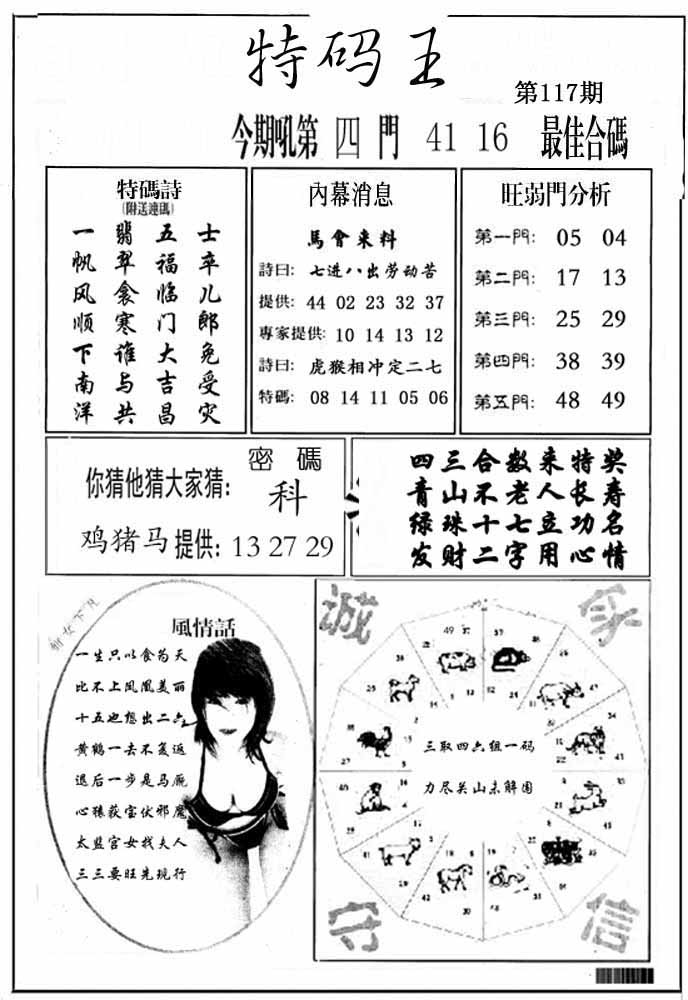 特码王
第117期
今期吼第 四 門 41 16 最佳合碼
特碼詩
(附送連碼)
一帆风顺下南洋
翡翠衾寒谁与共
五福临门大吉昌
士卒儿郎免受灾
內幕消息
馬會来料
詩曰: 七进八出劳动苦
提供: 44 02 23 32 37
專家提供: 10 14 13 12
詩曰: 虎猴相冲定二七
特碼: 08 14 11 05 06
旺弱門分析
第一門: 05 04
第二門: 17 13
第三門: 25 29
第四門: 38 39
第五門: 48 49
密碼
你猜他猜大家猜: 科
鸡猪马提供: 13 27 29
四三合数来特奖
青山不老人长寿
绿珠十七立功名
发财二字用心情
風情話
一生只以食为天
比不上凤凰美丽
十五也想出二六
黄鹤一去不复返
退后一步是马厩
心猿荻宝伏邪魔
太监宫女找夫人
三三要旺先现行
诚
家
三取四六组一码
力尽关山未解围
守
信